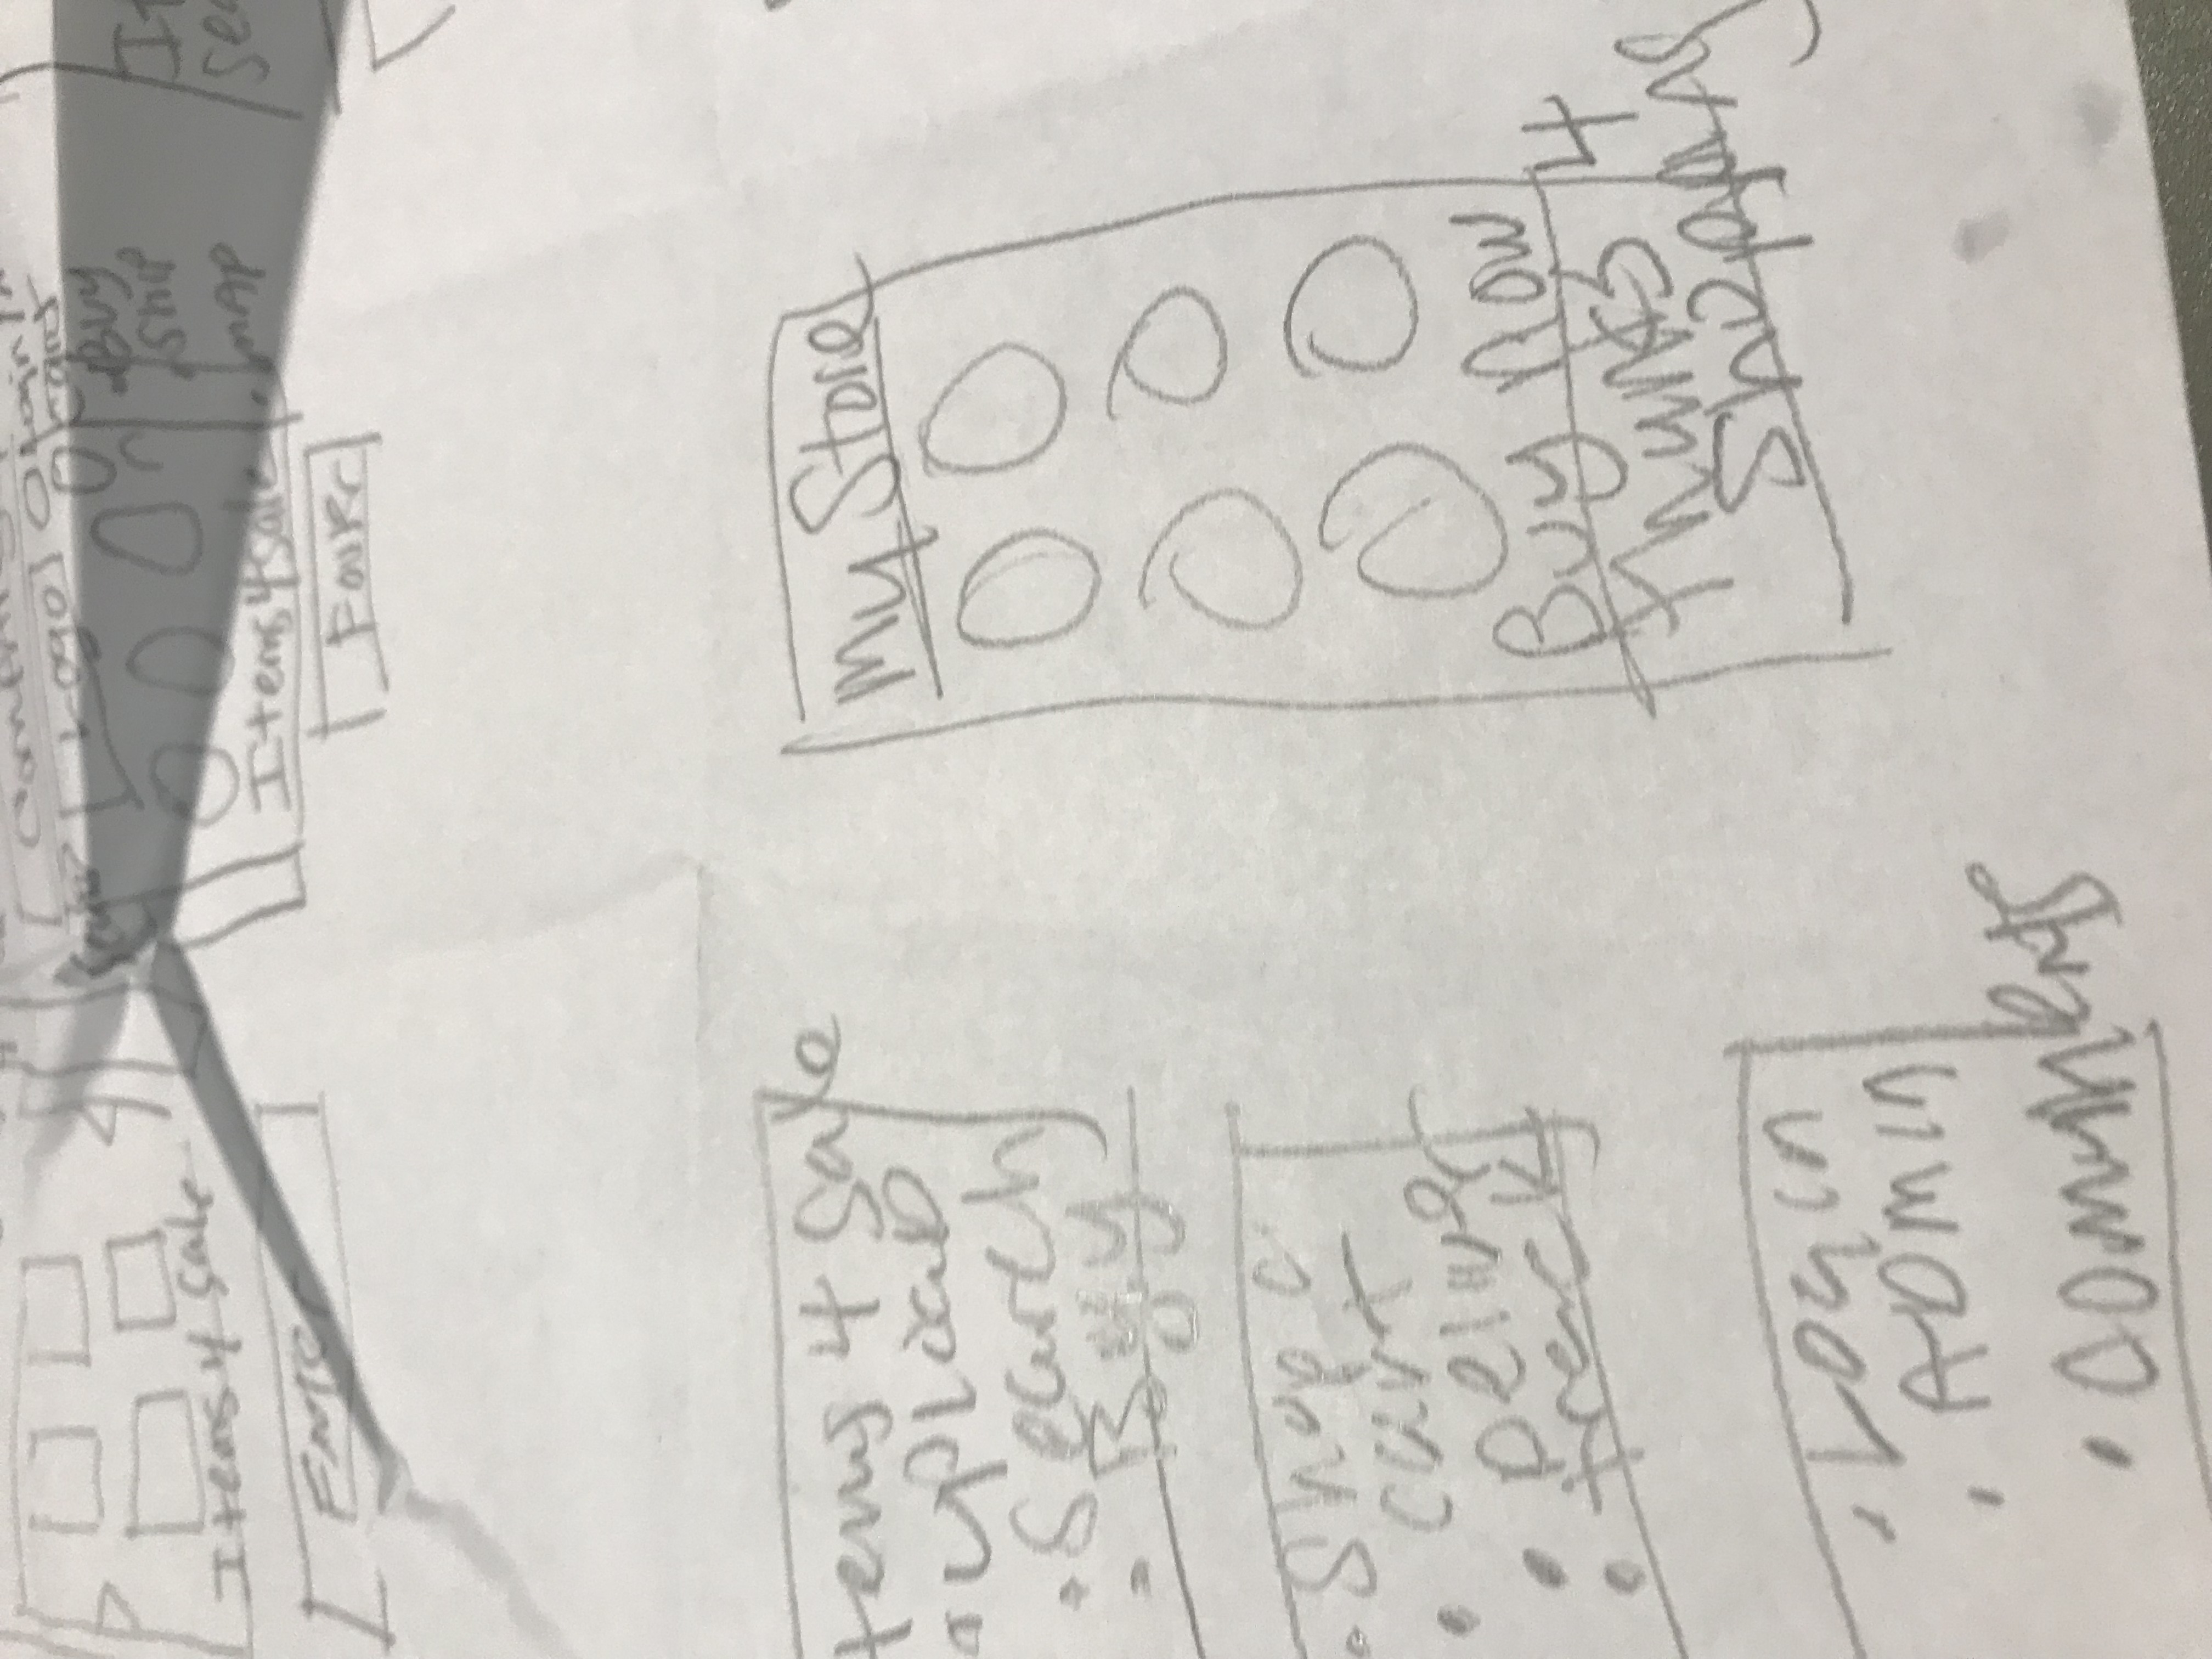 Items 4 Sale
Enter
Logo
Login
Cart
Buy
Ship
MAP
Items 4 Sale
It
Sea
tems 4 Sale
• UPLOAD
• Search
• Buy
• Shop c
• Cart
• Deliver
• track
• Login
• ADmin
• Comments
My Store
Buy Now
Thanks 4
Shopping